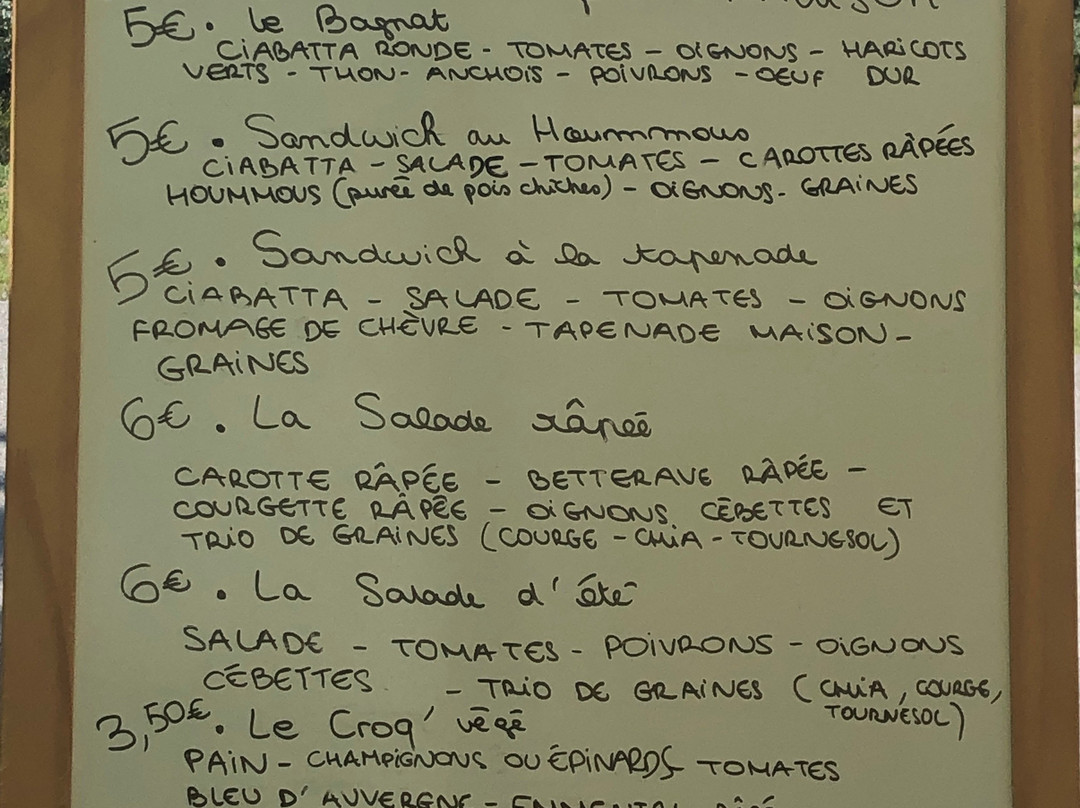 5€. Le Bagnat
CIABATTA RONDE - TOMATES - OIGNONS - HARICOTS
VERTS - THON - ANCHOIS - POIVRONS - OEUF DUR
5€. Sandwich au Hoummmous
CIABATTA - SALADE - TOMATES - CAROTTES RÂPÉES
HOUMMOUS (purée de pois chiches) - OIGNONS - GRAINES
5€. Sandwich à la tapenade
CIABATTA - SALADE - TOMATES - OIGNONS
FROMAGE DE CHÈVRE - TAPENADE MAISON -
GRAINES
6€. La Salade râpée
CAROTTE RÂPÉE - BETTERAVE RÂPÉE -
COURGETTE RÂPÉE - OIGNONS CÉBETTES ET
TRIO DE GRAINES (COURGE - CHIA - TOURNESOL)
6€. La Salade d'été
SALADE - TOMATES - POIVRONS - OIGNONS
CÉBETTES - TRIO DE GRAINES (CHIA, COURGE,
TOURNESOL)
3,50€. Le Croq' végé
PAIN - CHAMPIGNONS OU ÉPINARDS TOMATES
BLEU D'AUVERGNE - EMMENTAL